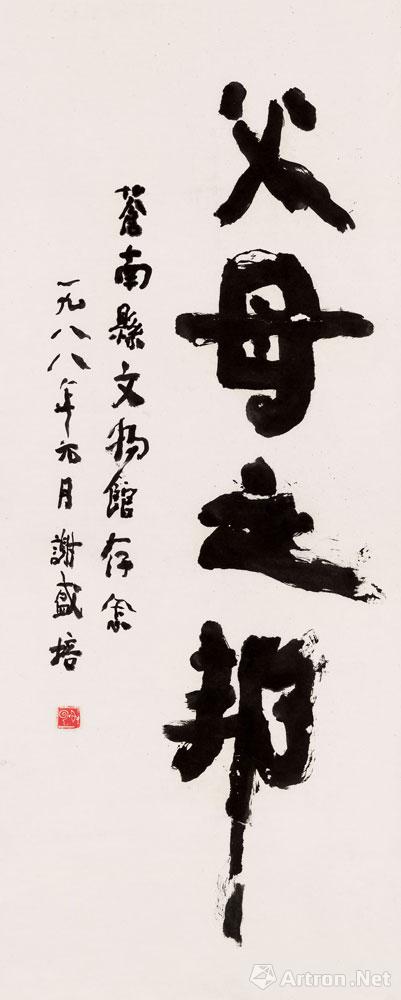 父母之邦
蒼南縣文物館存念
一九八八年元月謝盛培
Artron.Net